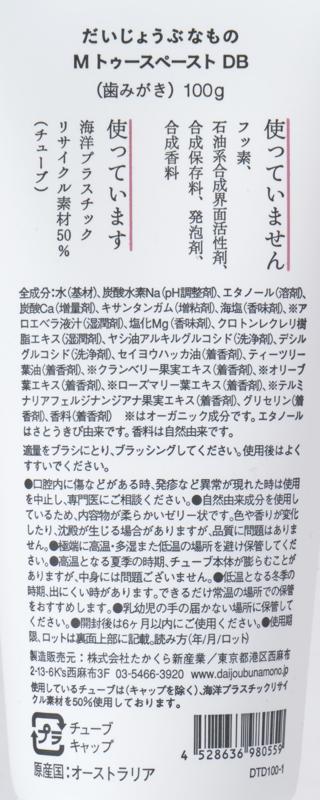 だいじょうぶなもの
M トゥースペースト DB
（歯みがき） 100g
使っていません
フッ素、
石油系合成界面活性剤、
合成保存料、発泡剤、
合成香料
使っています
海洋プラスチック
リサイクル素材50%
（チューブ）
全成分：水（基材）、炭酸水素Na（pH調整剤）、エタノール（溶剤）、
炭酸Ca（増量剤）、キサンタンガム（増粘剤）、海塩（香味剤）、※ア
ロエベラ液汁（湿潤剤）、塩化Mg（香味剤）、クロトンレクレリ樹
脂エキス（湿潤剤）、ヤシ油アルキルグルコシド（洗浄剤）、デシル
グルコシド（洗浄剤）、セイヨウハッカ油（着香剤）、ティーツリー
葉油（着香剤）、※クランベリー果実エキス（着香剤）、※オリーブ
葉エキス（着香剤）、※ローズマリー葉エキス（着香剤）、※テルミ
ナリアフェルジナンジアナ果実エキス（着香剤）、グリセリン（着
香剤）、香料（着香剤） ※はオーガニック成分です。エタノール
はさとうきび由来です。香料は自然由来です。
適量をブラシにとり、ブラッシングしてください。使用後はよく
すすいでください。
●口腔内に傷などがある時、発疹など異常が現れた時は使用
を中止し、専門医にご相談ください。●自然由来成分を使用し
ているため、内容物が柔らかいゼリー状です。色や香りが変化
したり、沈殿が生じる場合がありますが、品質に問題はありませ
ん。●極端に高温・多湿また低温の場所を避け保管してくだ
さい。●高温となる夏季の時期、チューブ本体が膨らむことが
ありますが、中身には問題ございません。●低温となる冬季の
時期、出にくい時があります。できるだけ常温の場所での保管
をおすすめします。●乳幼児の手の届かない場所に保管して
ください。●開封後は6ヶ月以内にご使用ください。●使用期
限、ロットは裏面上部に記載。読み方（年/月/ロット）
製造販売元：株式会社たかくら新産業／東京都港区西麻布
2-13-6K's西麻布3F 03-5466-3920 www.daijoubunamono.jp
使用しているチューブは（キャップを除く）、海洋プラスチックリサイ
クル素材を50%使用しております。
プラ
チューブ
キャップ
原産国：オーストラリア
4 528636 980559
DTD100-1